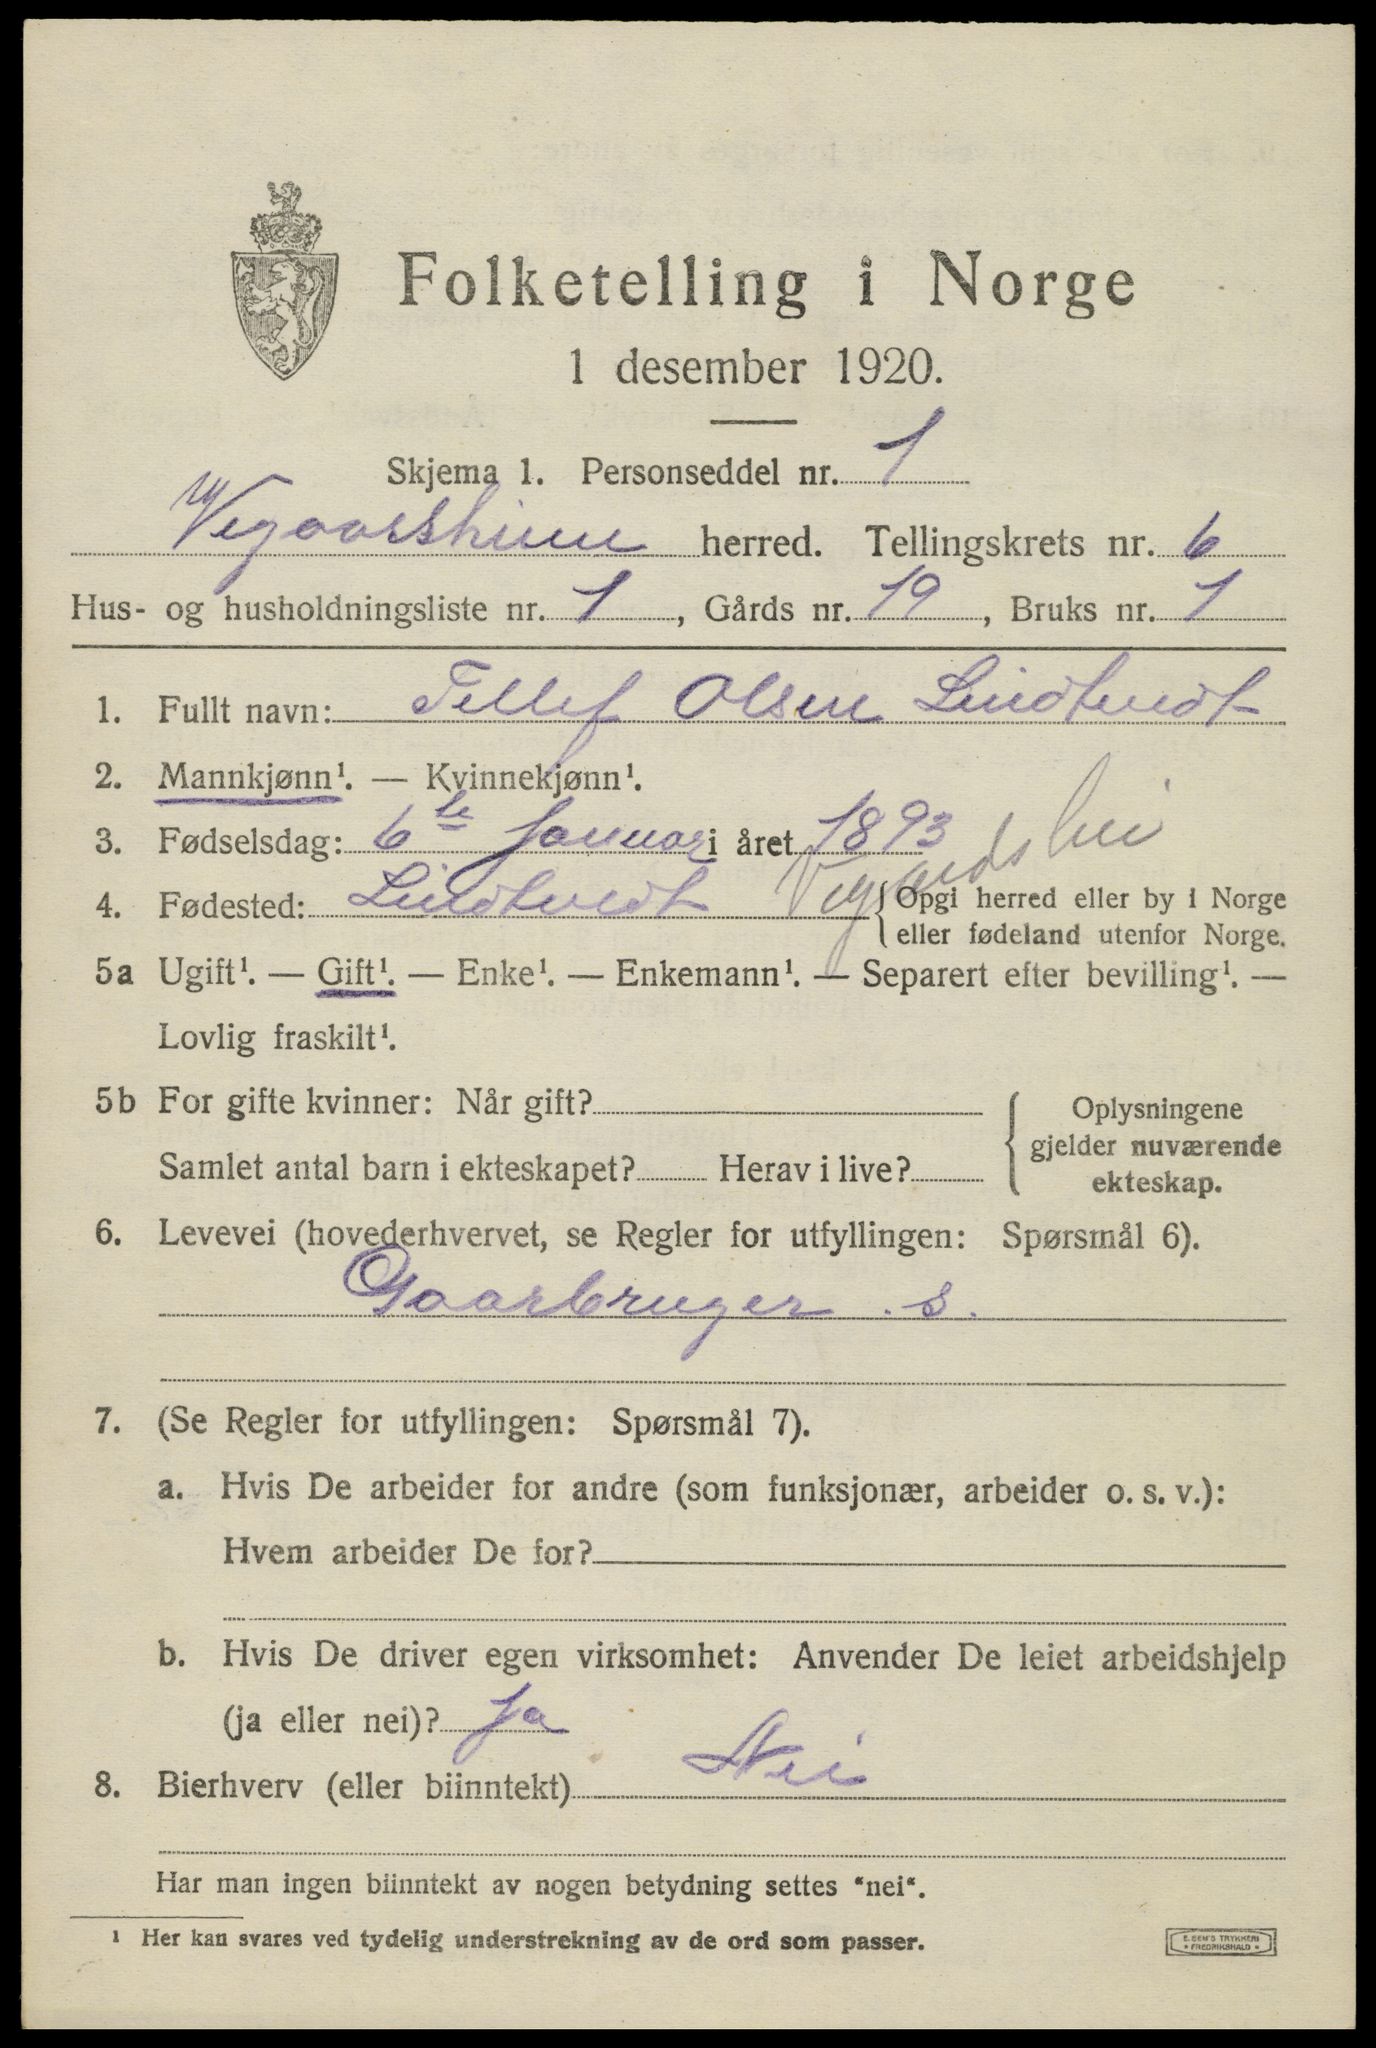 Folketelling i Norge
1 desember 1920.
Skjema 1. Personseddel nr. 1
Vegaarsheien herred. Tellingskrets nr. 6
Hus- og husholdningsliste nr. 1, Gårds nr. 19, Bruks nr. 1
1. Fullt navn: Tellef Olsen Lindtvedt
2. Mannkjønn¹. — Kvinnekjønn¹.
3. Fødselsdag: 6te Januar i året 1893
4. Fødested: Lindtvedt Vegaardshei {Opgi herred eller by i Norge
eller fødeland utenfor Norge.
5a Ugift¹. — Gift¹. — Enke¹. — Enkemann¹. — Separert efter bevilling¹. —
Lovlig fraskilt¹.
5b For gifte kvinner: Når gift?
Samlet antal barn i ekteskapet? Herav i live?
{Oplysningene
gjelder nuværende
ekteskap.
6. Levevei (hovederhvervet, se Regler for utfyllingen: Spørsmål 6).
Gaarbruger . s.
7. (Se Regler for utfyllingen: Spørsmål 7).
a. Hvis De arbeider for andre (som funksjonær, arbeider o. s. v.):
Hvem arbeider De for?
b. Hvis De driver egen virksomhet: Anvender De leiet arbeidshjelp
(ja eller nei)? Ja
8. Bierhverv (eller biinntekt) Nei
Har man ingen biinntekt av nogen betydning settes "nei".
¹ Her kan svares ved tydelig understrekning av de ord som passer.
E. SEM'S TRYKKERI
* FREDRIKSHALD *